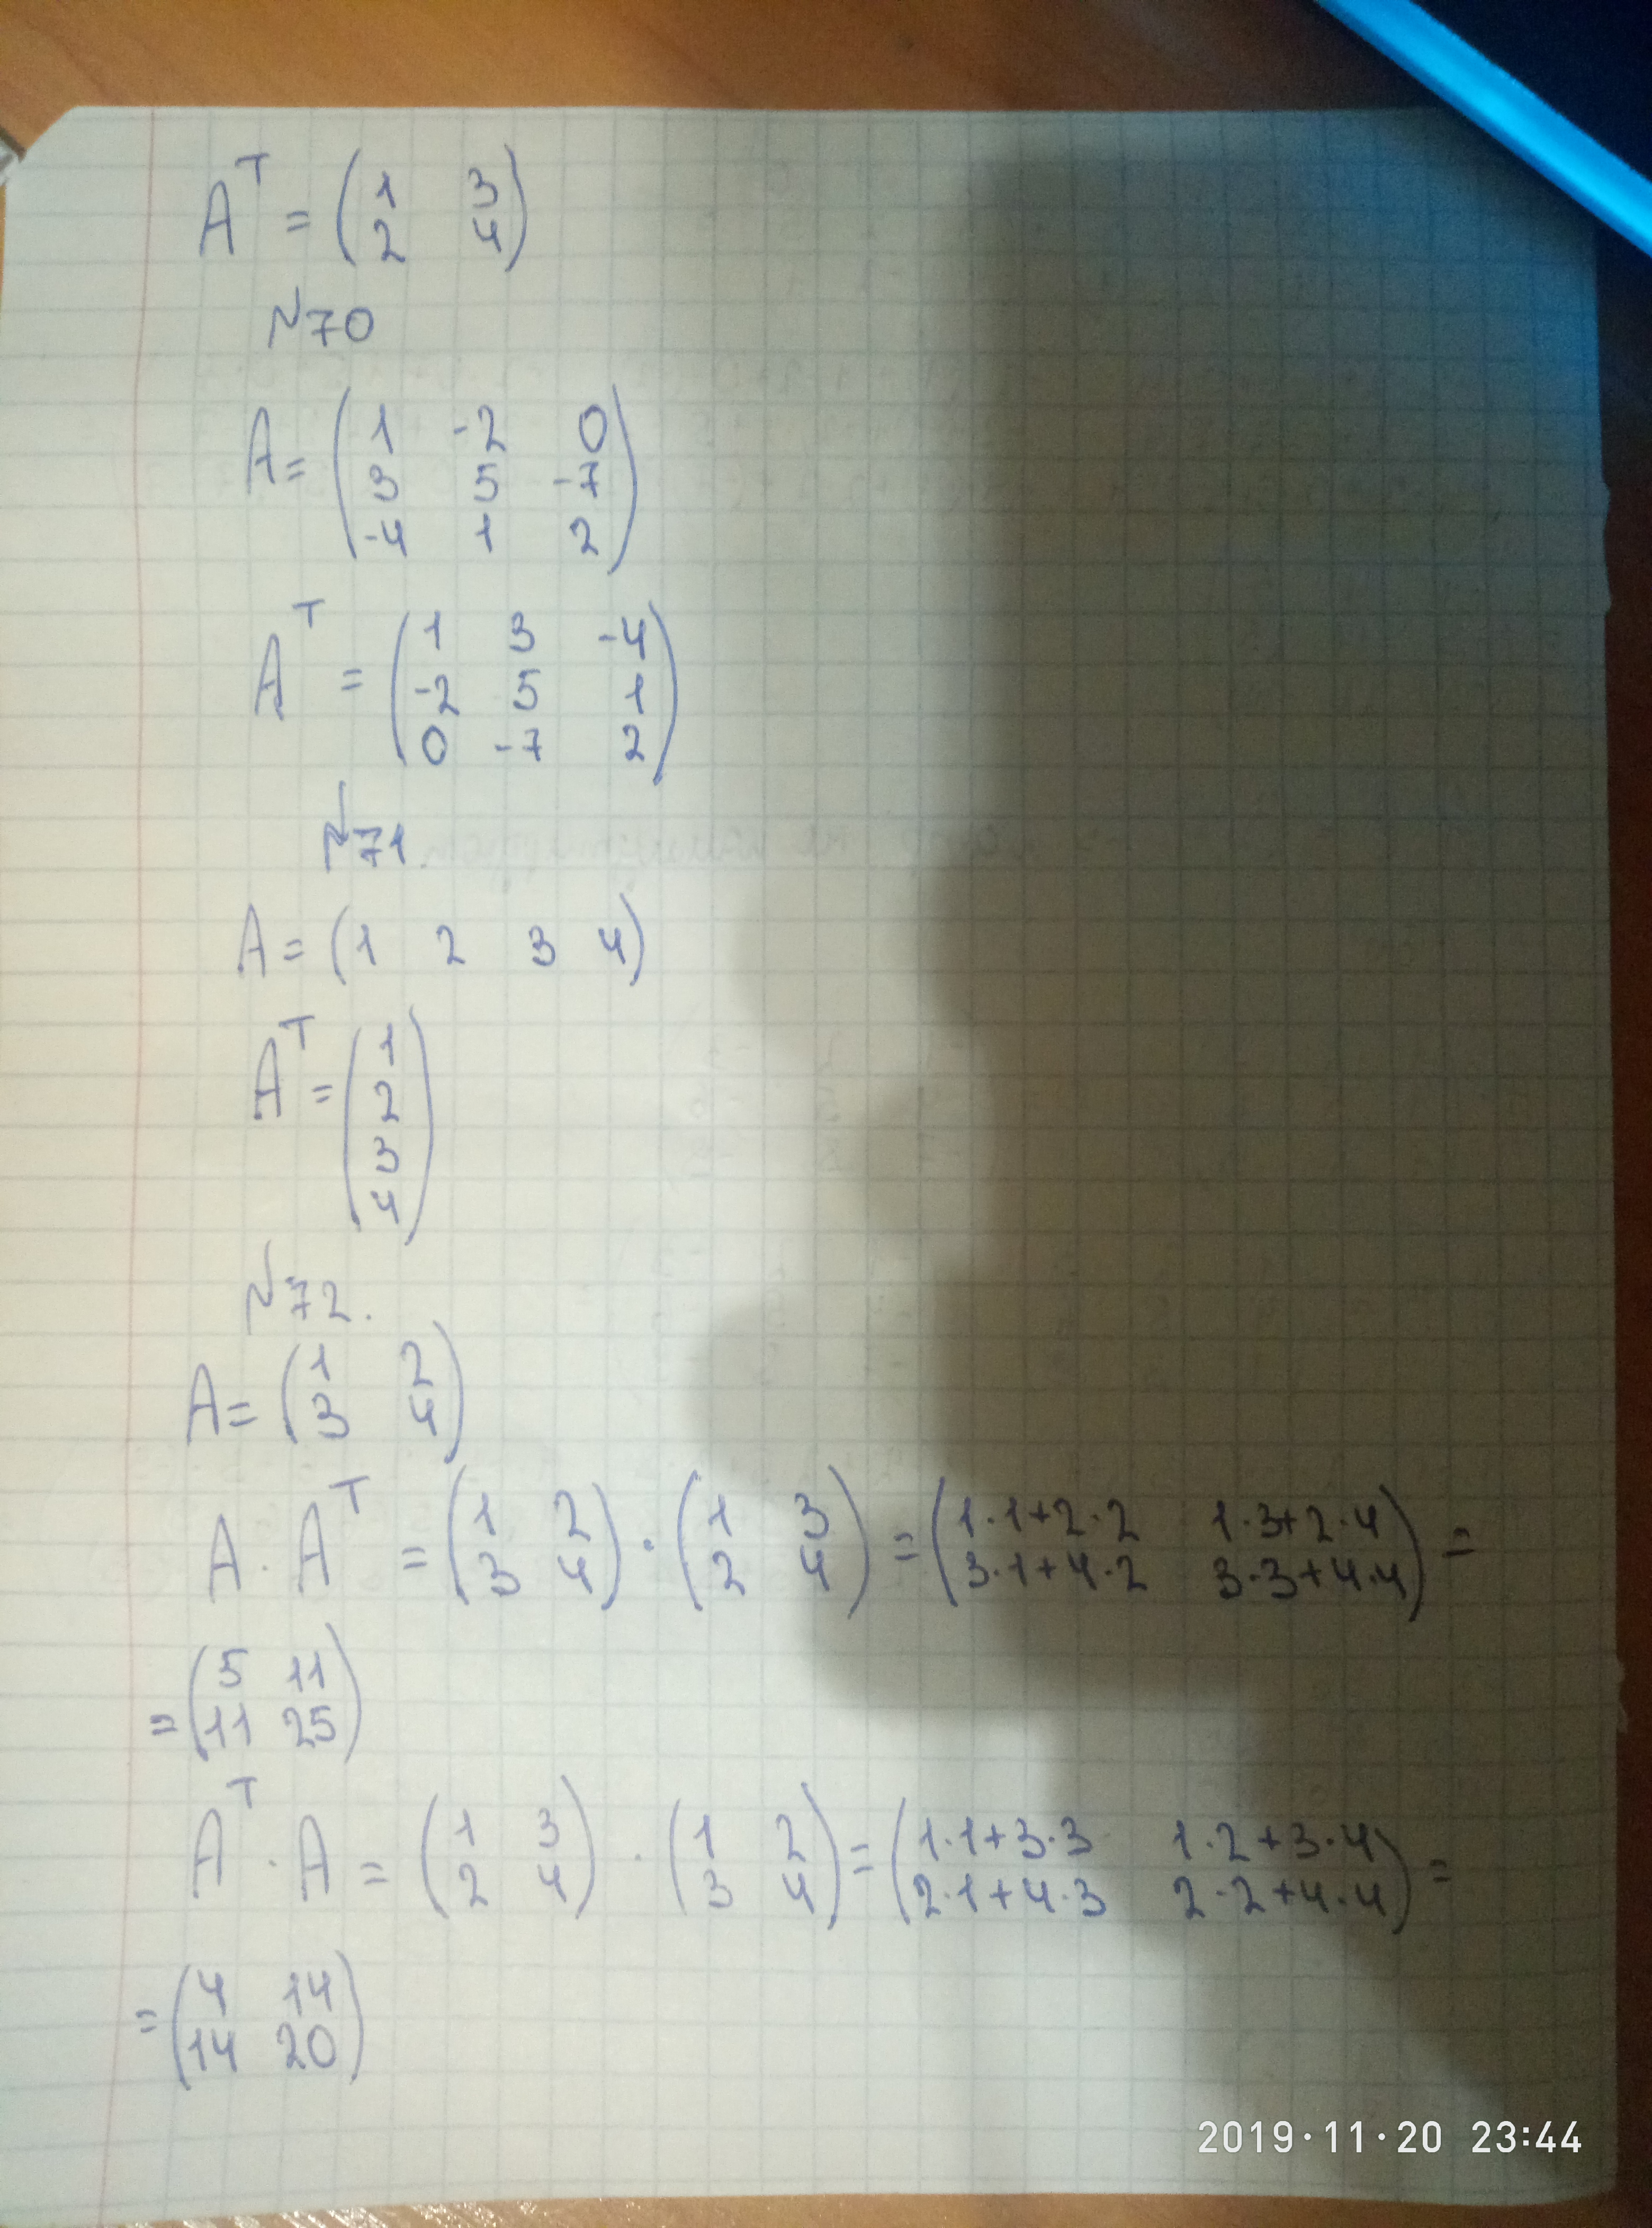 A^T = (1 3
2 4)
№70
A = (1 -2 0
3 5 -7
-4 1 2)
A^T = (1 3 -4
-2 5 1
0 -7 2)
№71.
A = (1 2 3 4)
A^T = (1
2
3
4)
№72.
A = (1 2
3 4)
A · A^T = (1 2
3 4) · (1 3
2 4) = (1·1+2·2 1·3+2·4
3·1+4·2 3·3+4·4) =
= (5 11
11 25)
A^T · A = (1 3
2 4) · (1 2
3 4) = (1·1+3·3 1·2+3·4
2·1+4·3 2·2+4·4) =
= (4 14
14 20)
2019·11·20 23:44